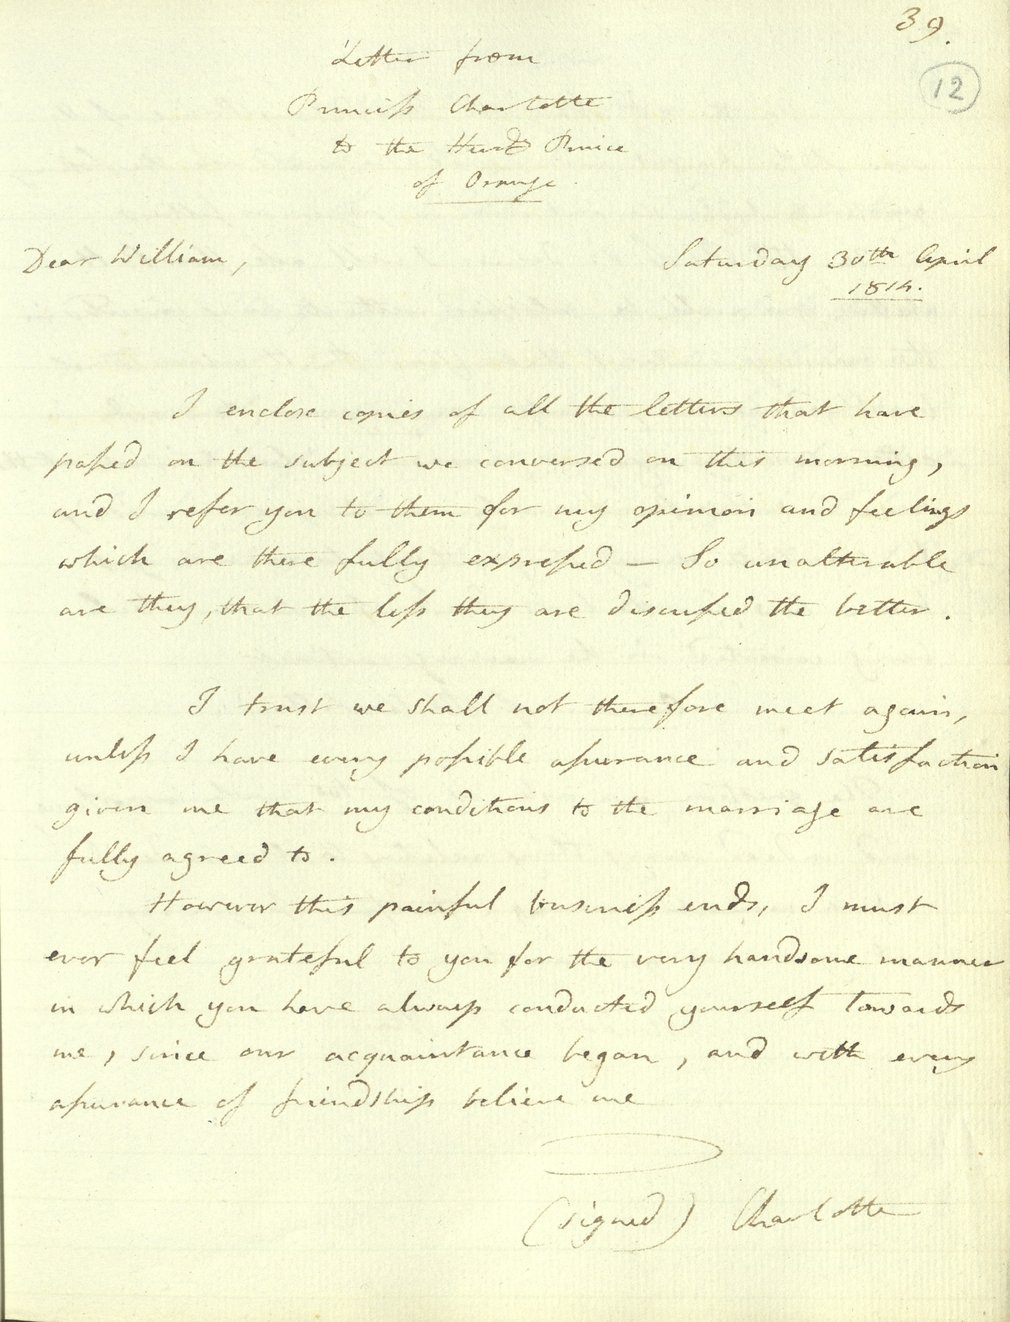 39.
12
Letter from
Princess Charlotte
to the Heredy Prince
of Orange.
Dear William,
Saturday 30th April
1814.
I enclose copies of all the letters that have
passed on the subject we conversed on this morning,
and I refer you to them for my opinion and feelings
which are there fully expressed – So unalterable
are they, that the less they are discussed the better.
I trust we shall not therefore meet again,
unless I have every possible assurance and satisfaction
given me that my conditions to the marriage are
fully agreed to.
However this painful business ends, I must
ever feel grateful to you for the very handsome manner
in which you have always conducted yourself towards
me, since our acquaintance began, and with every
assurance of friendship believe me
(signed) Charlotte